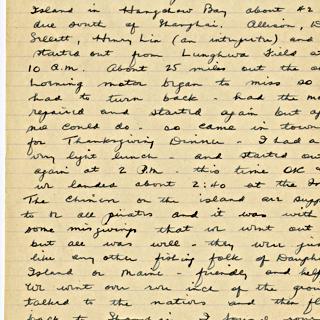 Island in Hangchow Bay about 42
due south of Shanghai. Allison, D
Sellett, Henry Lin (an interpreter) and
started out from Lunghwa Field at
10 A.M. About 25 miles out the
Lorning motor began to miss so
had to turn back - had the mo
repaired and started again but
no could do - so came in town
for Thanksgiving Dinner - I had a
very light lunch - and started out
again at 2 P.M. - this time OK
we landed about 2:40 at the
The Chinese on the island are supp
to be all pirates and it was with
some misgivings that we went out
but all was well - they were jus
like any other fishing folk of Dauph
Island or Maine - friendly and help
We went over inch of the grou
talked to the natives and then fl
back to Shanghai. I